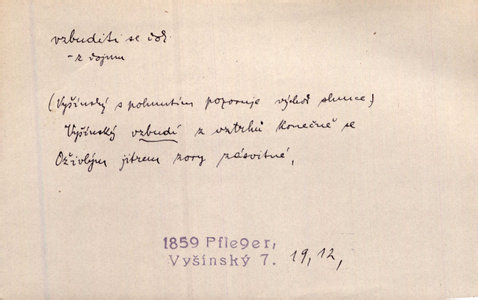 vzbuditi se dok.
- z dojmu
(Vyšínský s pohnutím pozoruje východ slunce)
Vyšínský vzbudí z vztrhů konečně se
Oživlým jitrem zory zásvitné,
1859 Pfle9er,
Vyšínský 7. 19,12,